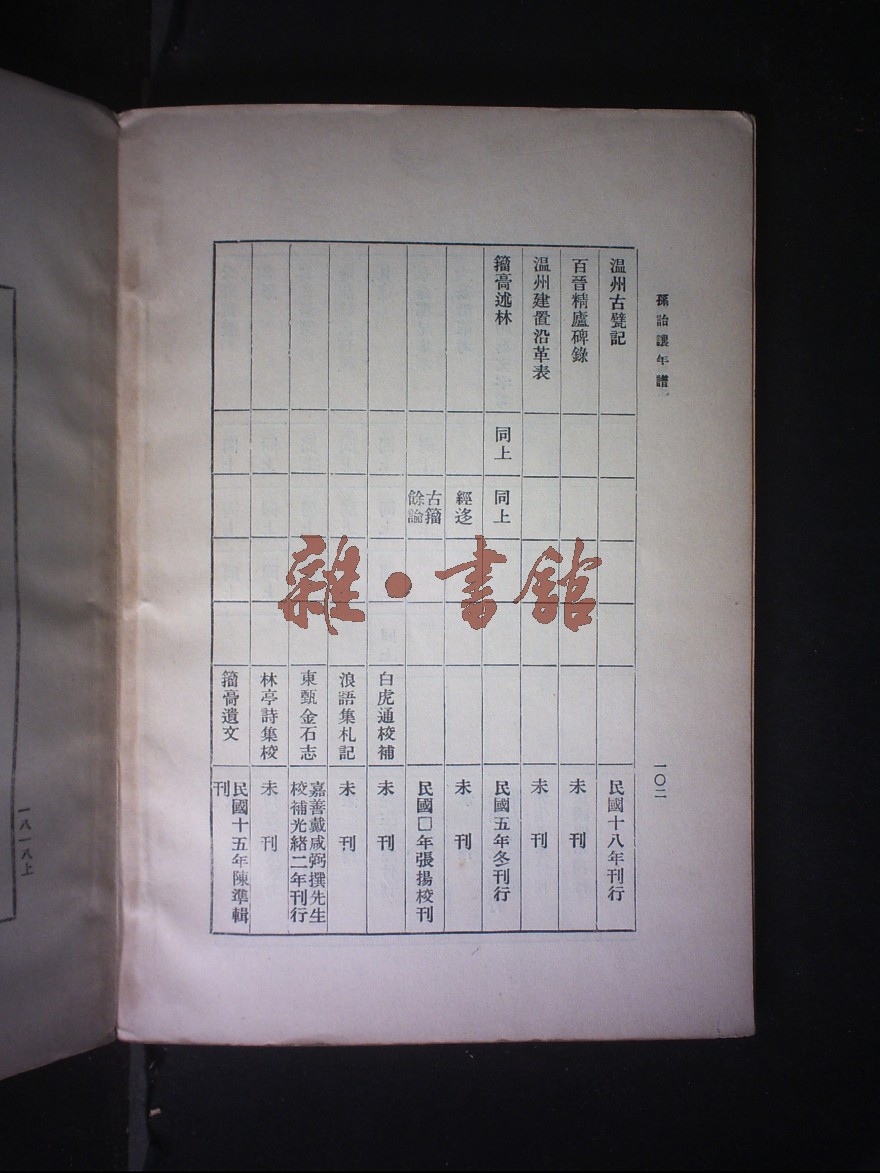 孫詒讓年譜
一〇二
温州古甓記
民國十八年刊行
百晉精廬碑錄
未刊
温州建置沿革表
未刊
籀膏述林
同上
同上
民國五年冬刊行
經迻
未刊
古籀
餘論
民國□年張揚校刊
白虎通校補
未刊
浪語集札記
未刊
東甌金石志
嘉善戴咸弼撰先生
校補光緒二年刊行
林亭詩集校
未刊
籀膏遺文
民國十五年陳準輯
刊
一八一八上
雜·書館